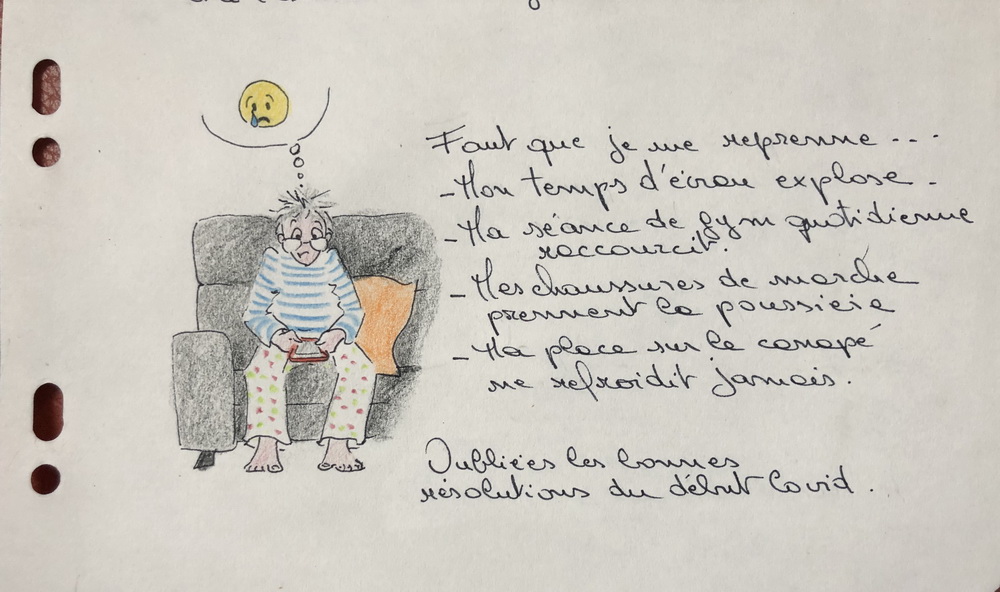 Faut que je me reprenne...
- Mon temps d'écran explose.
- Ma séance de gym quotidienne
raccourcit.
- Mes chaussures de marche
prennent la poussière
- Ma place sur le canapé
ne refroidit jamais.
Oubliées les bonnes
résolutions du début Covid.